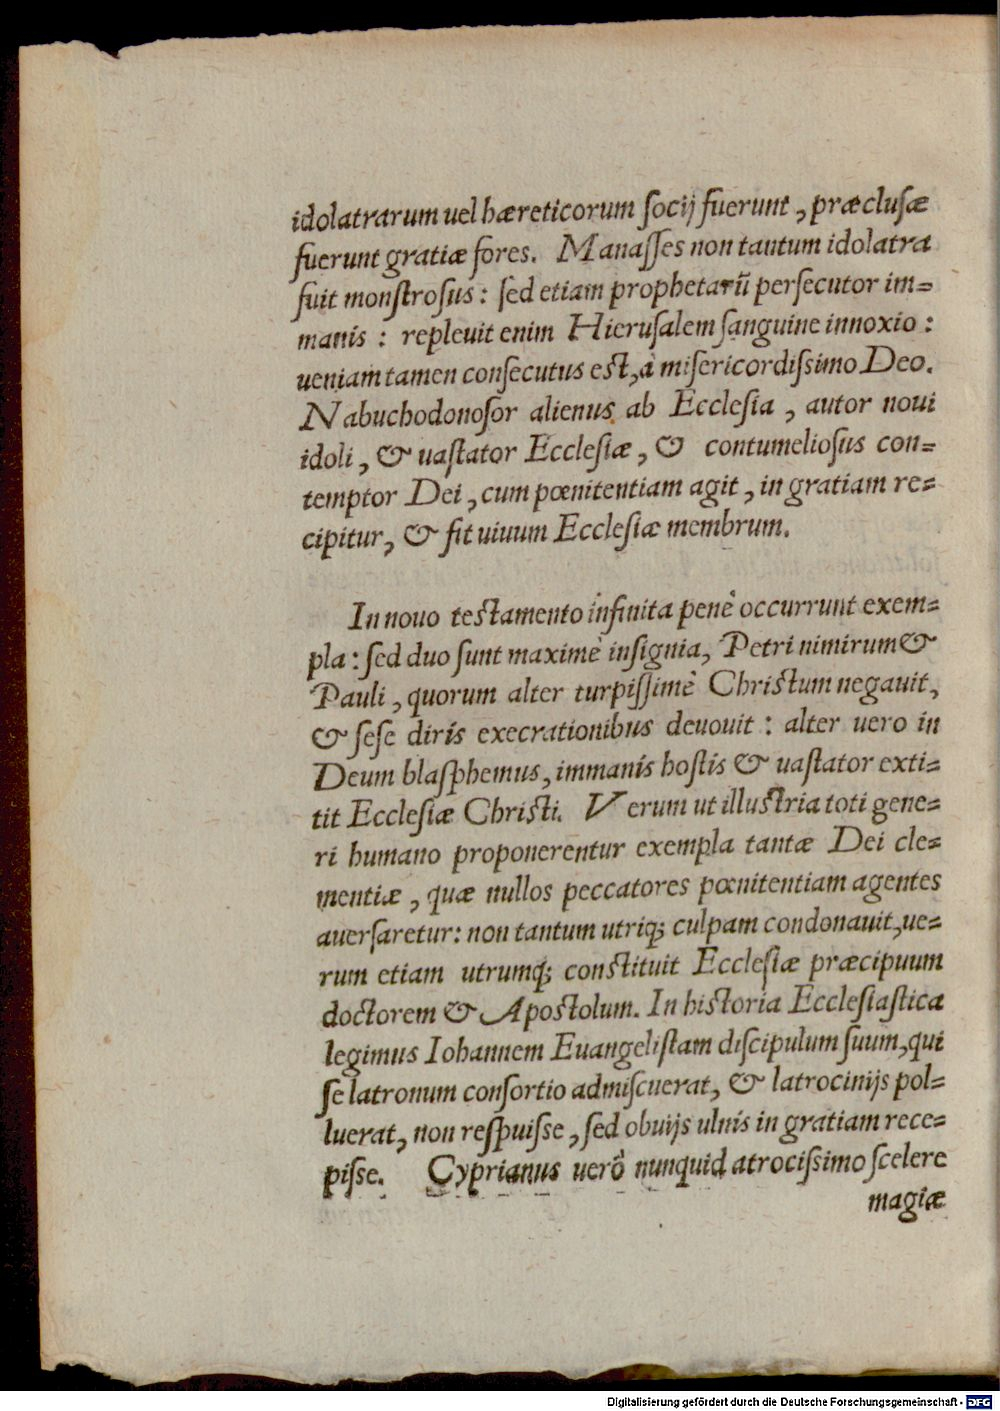 idolatrarum uel hæreticorum ſocij fuerunt, præcluſæ
fuerunt gratiæ fores. Manaſſes non tantum idolatra
fuit monſtroſus: ſed etiam prophetarũ perſecutor im=
manis: repleuit enim Hieruſalem ſanguine innoxio:
ueniam tamen conſecutus eſt, à miſericordiſsimo Deo.
Nabuchodonoſor alienus ab Eccleſia, autor noui
idoli, & uaſtator Eccleſiæ, & contumelioſus con=
temptor Dei, cum pœnitentiam agit, in gratiam re=
cipitur, & fit uiuum Eccleſiæ membrum.
In nouo teſtamento infinita penè occurrunt exem=
pla: ſed duo ſunt maximè inſignia, Petri nimirum &
Pauli, quorum alter turpiſſimè Chriſtum negauit,
& ſeſe diris execrationibus deuouit: alter uero in
Deum blaſphemus, immanis hoſtis & uaſtator exti=
tit Eccleſiæ Chriſti. Verum ut illuſtria toti gene=
ri humano proponerentur exempla tantæ Dei cle=
mentiæ, quæ nullos peccatores pœnitentiam agentes
auerſaretur: non tantum utriq; culpam condonauit, ue=
rum etiam utrumq; conſtituit Eccleſiæ præcipuum
doctorem & Apoſtolum. In hiſtoria Eccleſiaſtica
legimus Iohannem Euangeliſtam diſcipulum ſuum, qui
ſe latronum conſortio admiſcuerat, & latrocinijs pol=
luerat, non reſpuiſſe, ſed obuijs ulnis in gratiam rece=
piſſe. Cyprianus uerò nunquid atrociſsimo ſcelere
magiæ
Digitalisierung gefördert durch die Deutsche Forschungsgemeinschaft - DFG